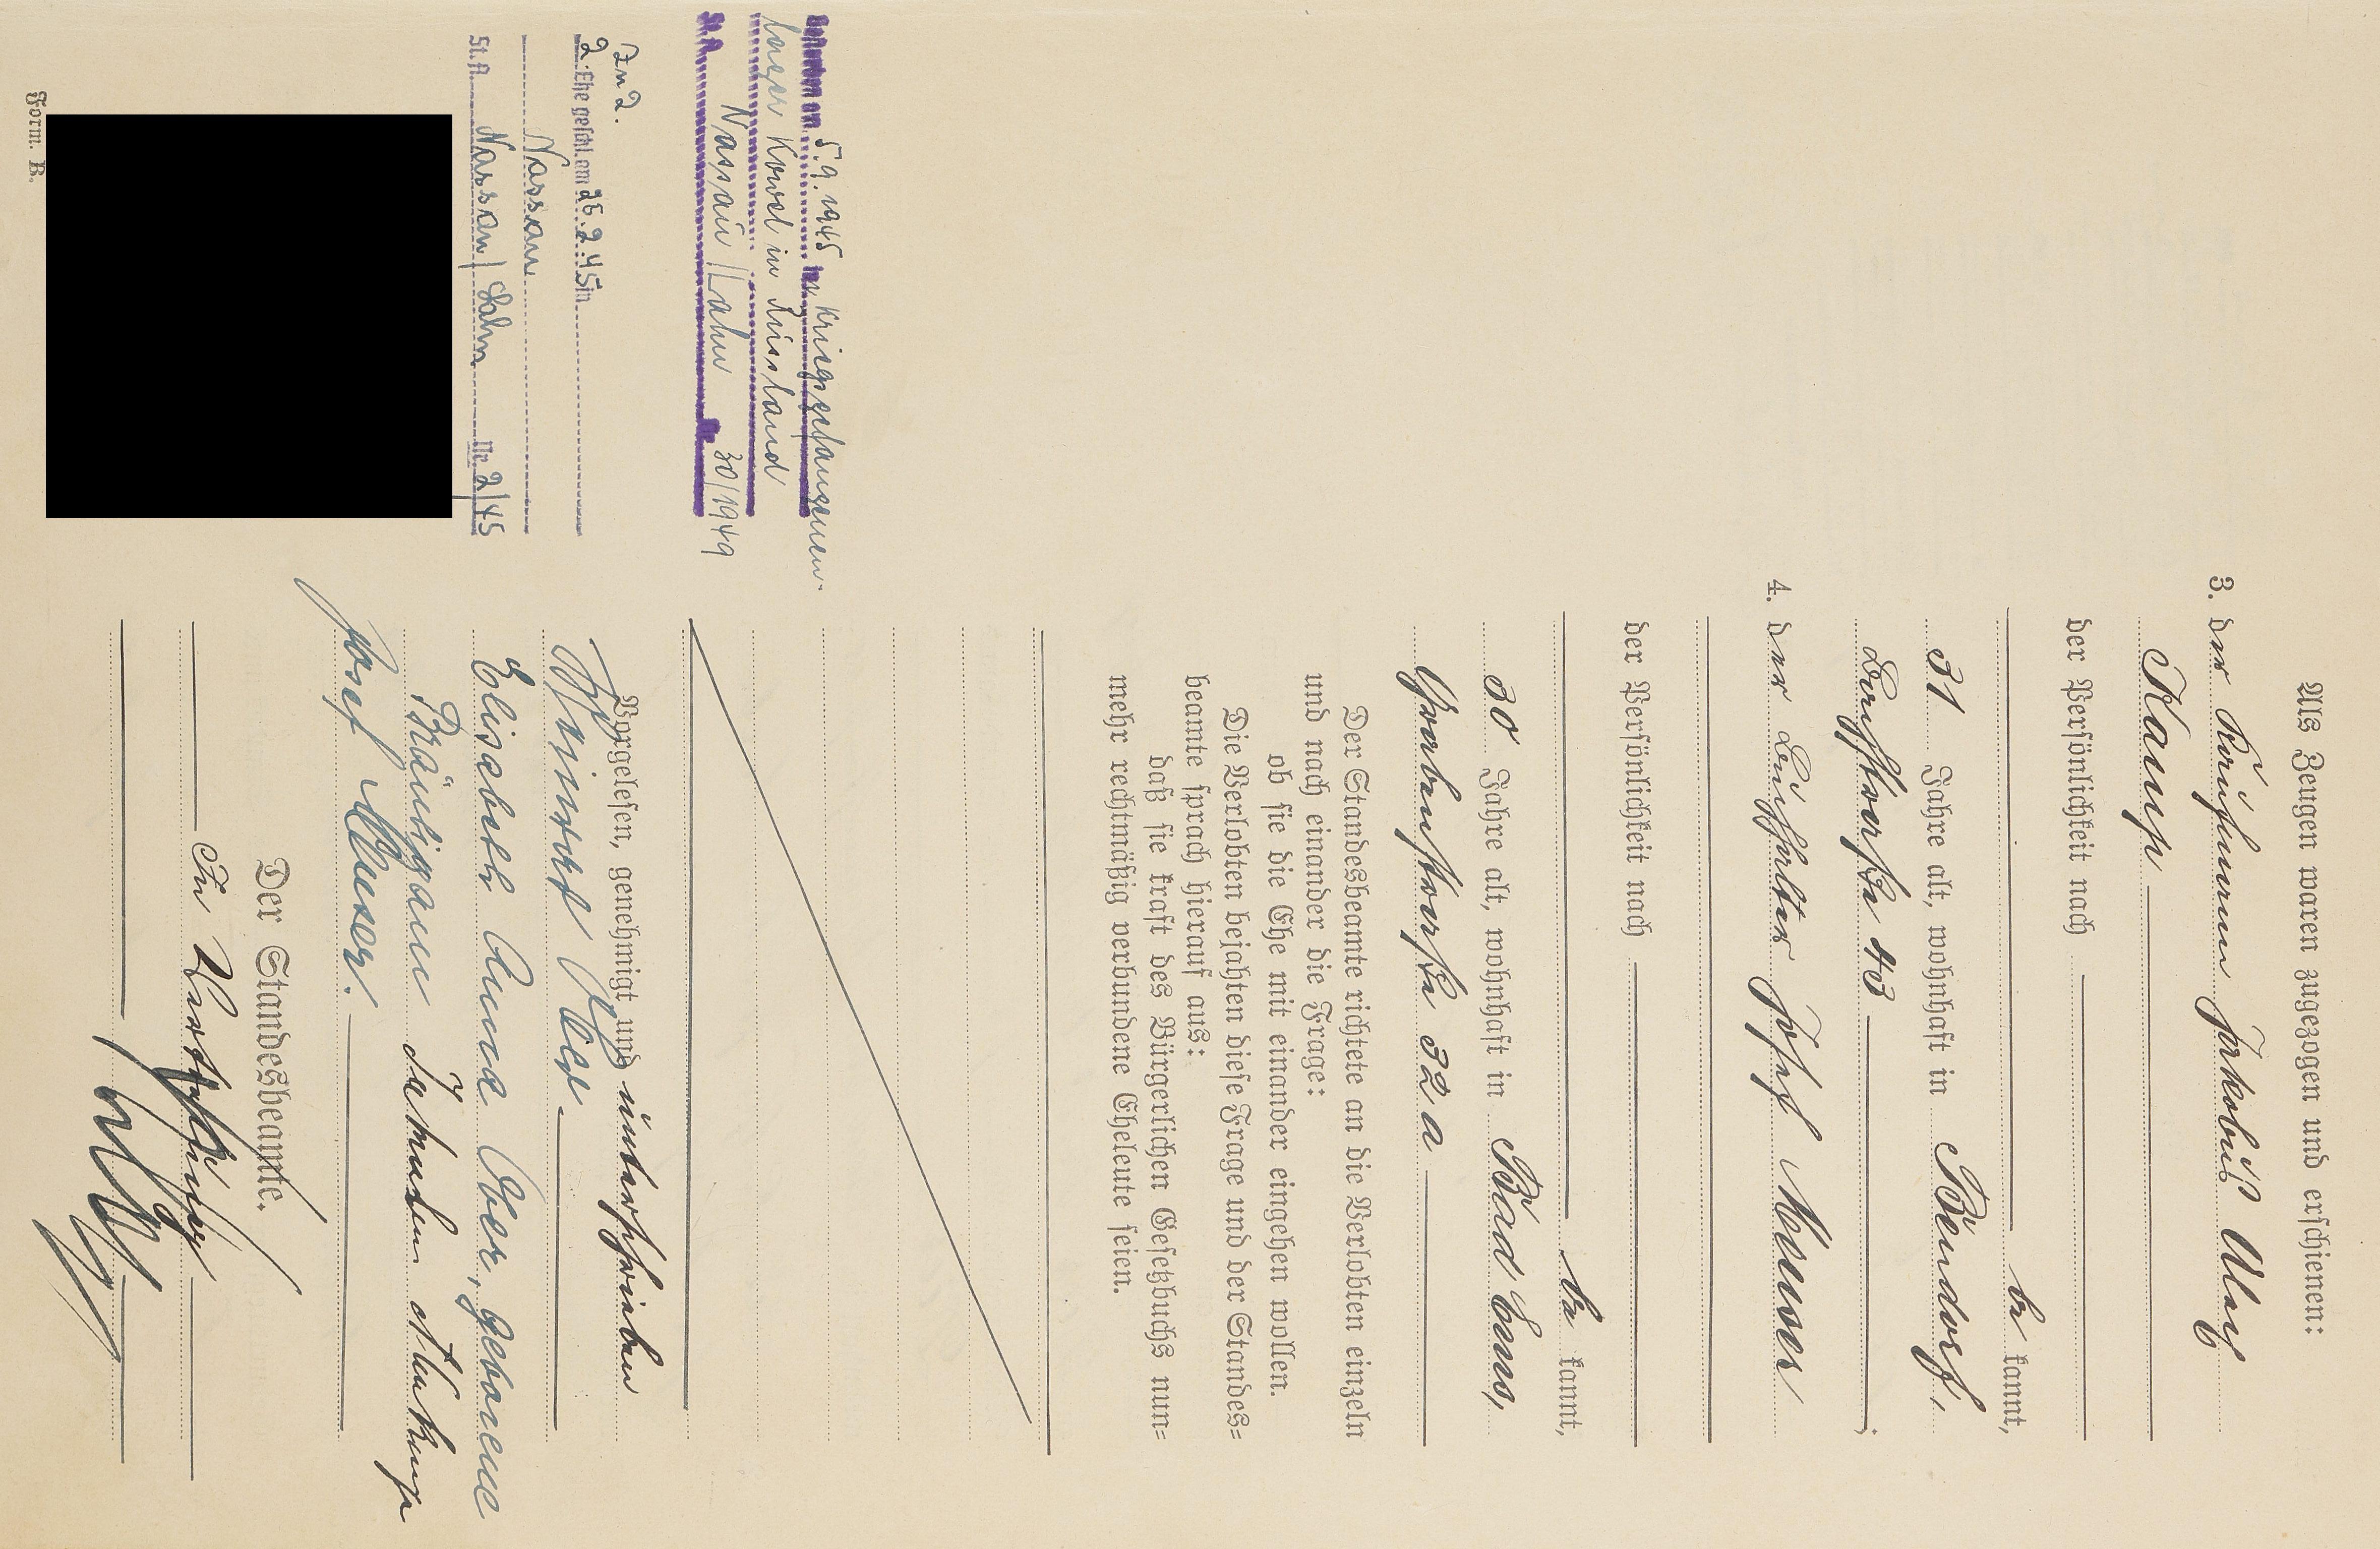 Als Zeugen waren zugezogen und erschienen:
3. der Kaufmann Jakobus Ulag
Kamp
der Persönlichkeit nach
be kannt,
31 Jahre alt, wohnhaft in Bendorf,
43
4. der Josef Meuser
der Persönlichkeit nach
be kannt,
30 Jahre alt, wohnhaft in Bad Ems,
32 a
Der Standesbeamte richtete an die Verlobten einzeln
und nach einander die Frage:
ob sie die Ehe mit einander eingehen wollen.
Die Verlobten bejahten diese Frage und der Standes=
beamte sprach hierauf aus:
daß sie kraft des Bürgerlichen Gesetzbuchs nun=
mehr rechtmäßig verbundene Eheleute seien.
Vorgelesen, genehmigt und unterschrieben
Elisabeth Anna geborene
Bräutigam
Josef Meuser.
Der Standesbeamte.
In Vertretung
am 5.9.1945 in Kriegsgefangenen-
lager Kowel in Russland
St.A. Nassau/Lahn Nr. 30/1949
Zu 2.
2. Ehe geschl. am 26.2.45 in
Nassau
St.A. Nassau/Lahn Nr. 2/45
Form. B.